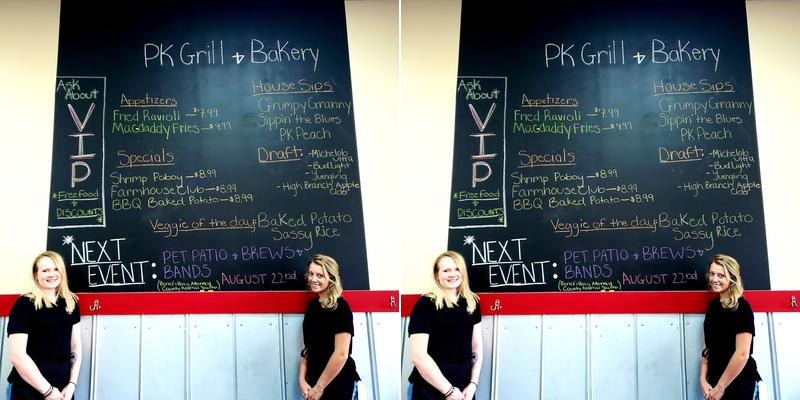 PK Grill + Bakery
Ask
About
VIP
*Free food
+
DISCOUNTS*
Appetizers
Fried Ravioli — $7.99
Macdaddy Fries — $9.99
House Sips
Grumpy Granny
Sippin' the Blues
PK Peach
Specials
Shrimp Poboy — $8.99
Farmhouse Club — $8.99
BBQ Baked Potato — $8.99
Draft:
-Michelob
Ultra
-Bud Light
-Yuengling
-High Branch Apple
Cider
Veggie of the day: Baked Potato
Sassy Rice
*NEXT
EVENT:
PET PATIO + BREWS +
BANDS
AUGUST 22nd
PK Grill + Bakery
Ask
About
VIP
*Free food
+
DISCOUNTS*
Appetizers
Fried Ravioli — $7.99
Macdaddy Fries — $9.99
House Sips
Grumpy Granny
Sippin' the Blues
PK Peach
Specials
Shrimp Poboy — $8.99
Farmhouse Club — $8.99
BBQ Baked Potato — $8.99
Draft:
-Michelob
Ultra
-Bud Light
-Yuengling
-High Branch Apple
Cider
Veggie of the day: Baked Potato
Sassy Rice
*NEXT
EVENT:
PET PATIO + BREWS +
BANDS
AUGUST 22nd